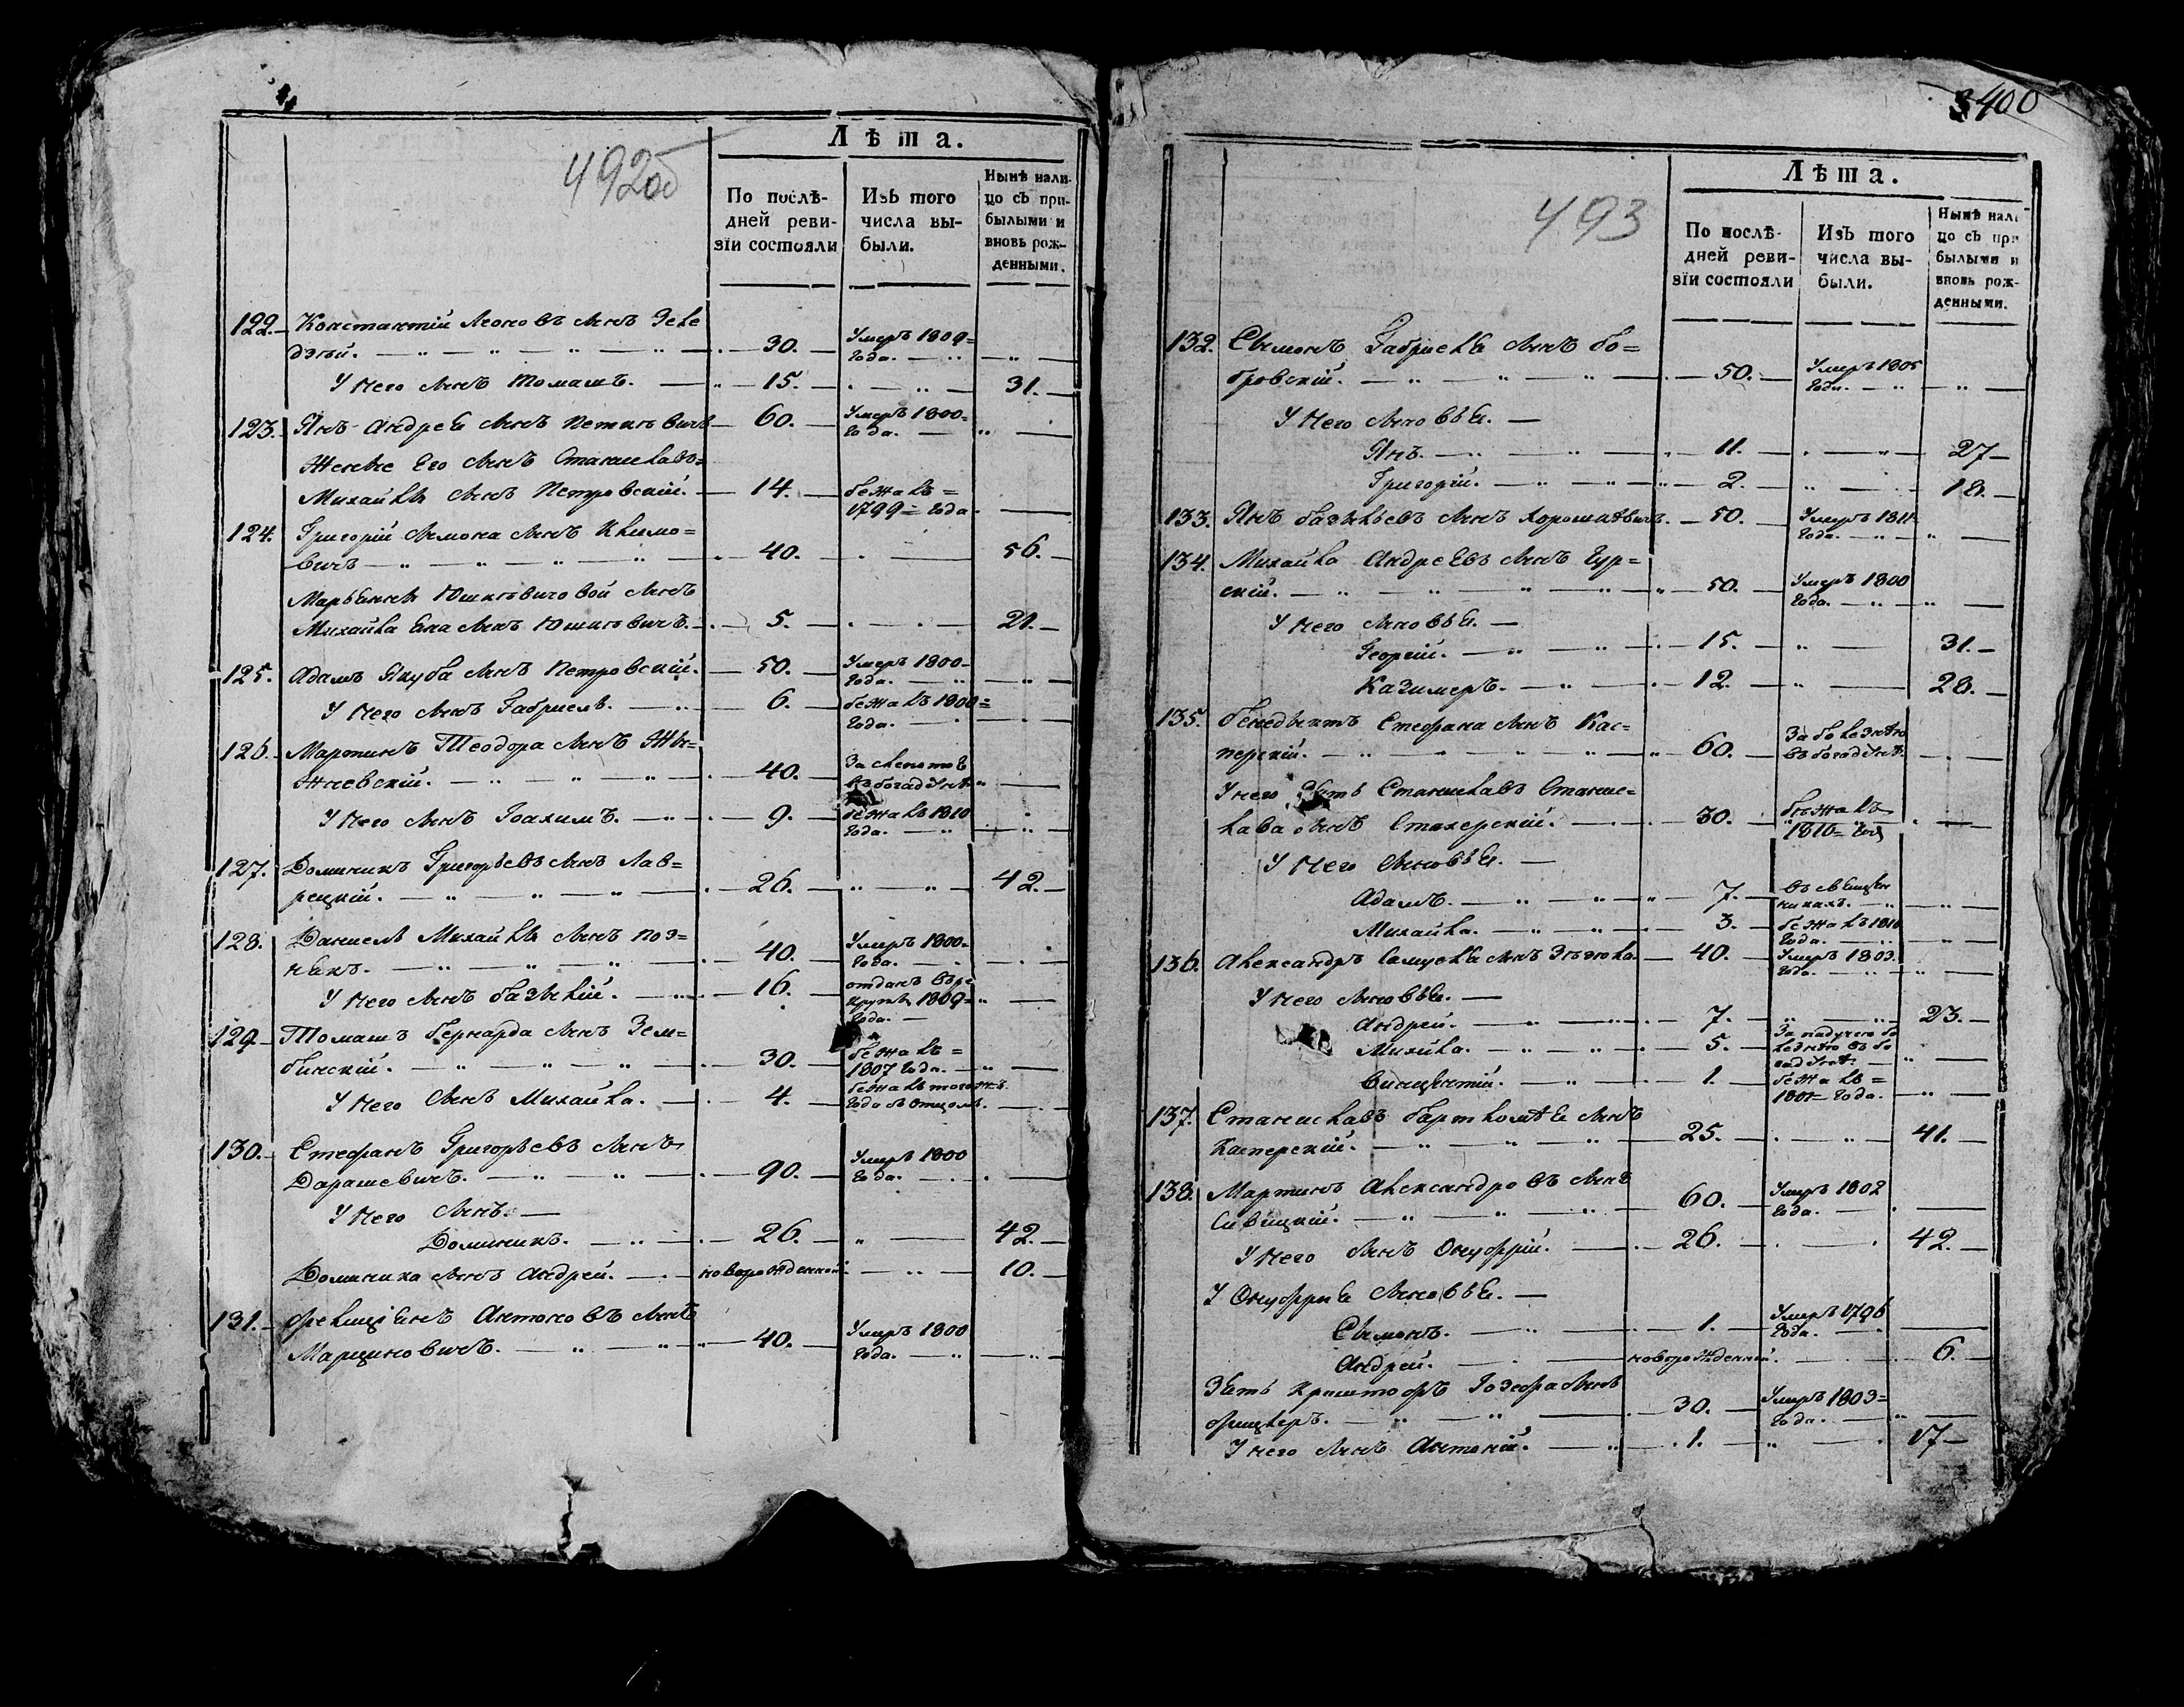 492об
Лѣта.
По послѣ-
дней реви-
зіи состояли
Изъ того
числа вы-
были.
Нынѣ нали-
цо съ при-
былыми и
вновь рож-
денными.
122. Константій Леоновъ сынъ Зеле
дзюй. 30. Умеръ 1809=
года.
У него сынъ Томашъ. 15. 31.
123. Янъ Андрея сынъ 60. Умеръ 1800=
года.
Его сынъ Станиславъ=
Михайлы сынъ Петровскій. 14. бежалъ=
1799= года.
124. Григорій Симона сынъ Климо=
вичъ 40. 56.
Марьянны Юшкевичовой сынъ
Михайла сынъ Юшкевичъ. 5. 21.
125. Адамъ Якуба сынъ Петровскій. 50. Умеръ 1800=
года.
У него сынъ Габриель. 6. бежалъ 1800=
года.
126. Мартинъ Теодора сынъ
жневскій. 40. За слепотою
въ богадѣльне
У него сынъ Іоахимъ. 9. бежалъ 1810
года.
127. Доминикъ Григорьевъ сынъ Лав=
рецкій. 26. 42.
128. Даниелъ Михайлы сынъ Поз=
някъ. 40. Умеръ 1800=
года.
У него сынъ Базылій. 16. отданъ въ ре
круты 1809=
года.
129. Томашъ Бернарда сынъ Зем=
бинскій. 30. бежалъ=
1807 года.
У него сынъ Михайла. 4. бежалъ того жъ
года съ отцомъ.
130. Стефанъ Григорьевъ сынъ
Дарашевичъ. 90. Умеръ 1800
года.
У него сынъ.
Доминикъ. 26. 42.
Доминика сынъ Андрей. новорожденной. 10.
131. Фелициянъ Антоновъ сынъ
Марциновичъ. 40. Умеръ 1800
года.
400
493
Лѣта.
По послѣ-
дней реви-
зіи состояли
Изъ того
числа вы-
были.
Нынѣ нали
цо съ при
былыми и
вновь рож-
денными.
132. Сымонъ Габриеля сынъ Бо=
бровскій. 50. Умеръ 1805
года.
У него сыновья.
Янъ. 11. 27
Григорій. 2. 18.
133. Янъ Базыльевъ сынъ 50. Умеръ 1811
года.
134. Михайла Андреевъ сынъ Гур=
скій. 50. Умеръ 1800
года.
У него сыновья.
Георгій. 15. 31.
Казимеръ. 12. 28.
135. Бенедыктъ Стефана сынъ Кас=
перскій. 60. За болезнію
въ богадѣльне
У него зять Станиславъ Станис=
лава сынъ 30. бежалъ
1810= года
У него сыновья.
Адамъ. 7. въ священ
никахъ.
Михайла. 3. бежалъ 1810
года.
136. Александръ Самуеля сынъ 40. Умеръ 1803.
года.
У него сыновья.
Андрей. 7. 23.
Михайла. 5. За падучею бо
лезнію въ бо
гадѣльне
Винцентій. 1. бежалъ=
1801= года.
137. Станиславъ Бартломѣя сынъ
Касперскій. 25. 41.
138. Мартинъ Александровъ сынъ
Сивицкій. 60. Умеръ 1802
года.
У него сынъ Онуфрій. 26. 42.
У Онуфрия сыновья.
Сымонъ. 1. Умеръ 1796
года.
Андрей. новорожденной. 6.
Зять Криштофъ Іозефа сынъ
Фицлеръ. 30. Умеръ 1803=
года.
У него сынъ Антоній. 1. 17